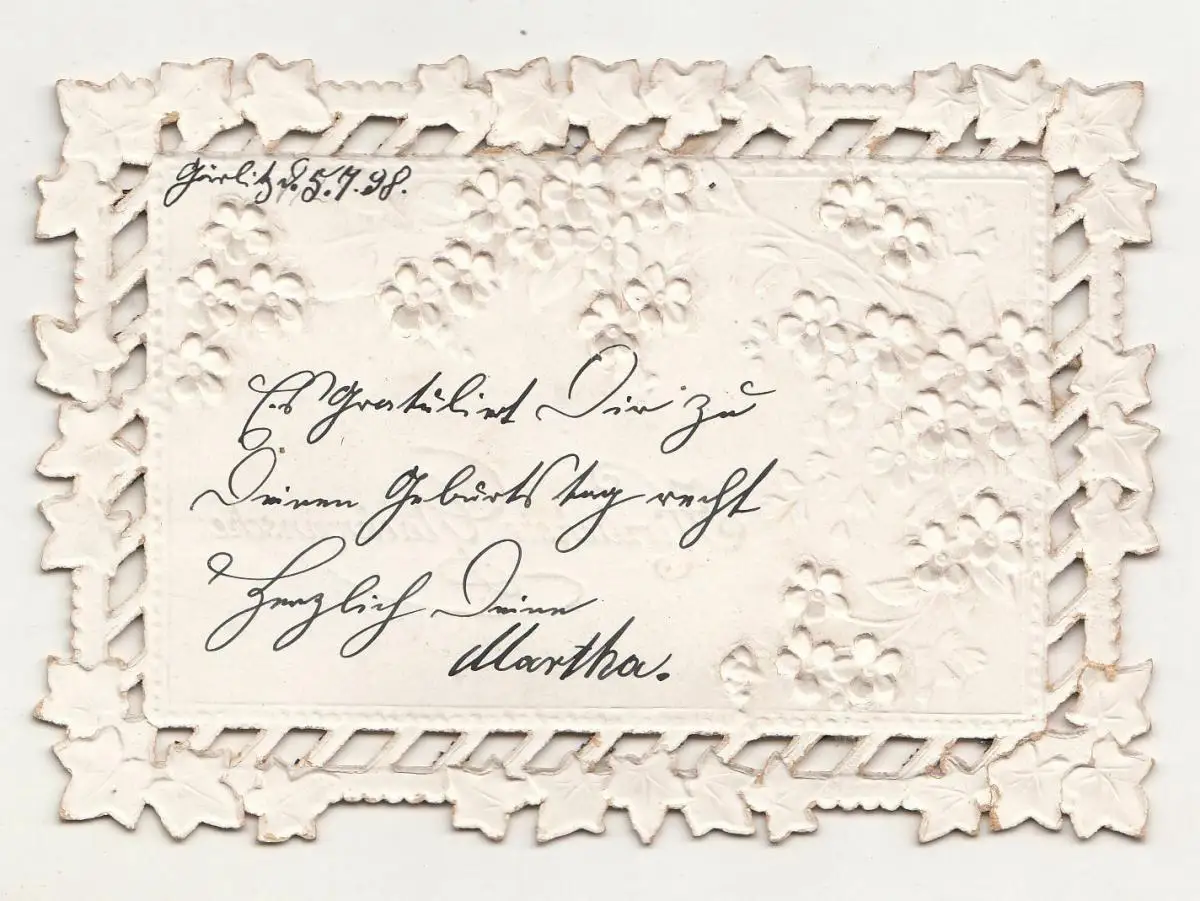 Görlitz d. 5.7.98.
Es Gratulirt Dir zu
Deinen Geburtstag recht
Herzlich Deine
Martha.